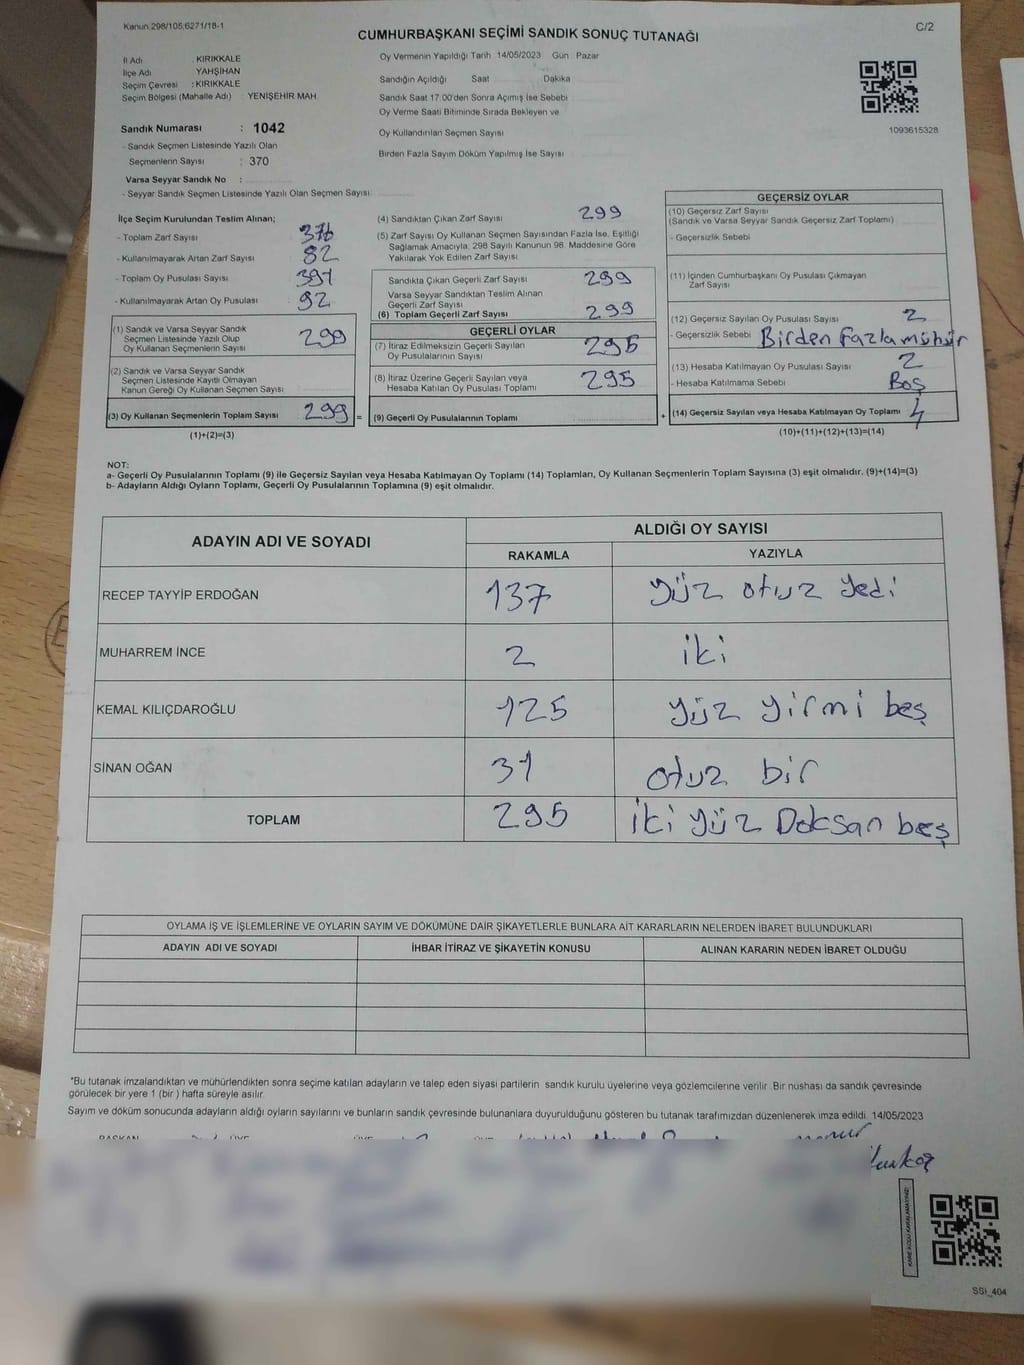 Kanun.298/105,6271/18-1
C/2
CUMHURBAŞKANI SEÇİMİ SANDIK SONUÇ TUTANAĞI
İl Adı : KIRIKKALE
İlçe Adı : YAHŞİHAN
Seçim Çevresi : KIRIKKALE
Seçim Bölgesi (Mahalle Adı) : YENİŞEHİR MAH.
Sandık Numarası : 1042
- Sandık Seçmen Listesinde Yazılı Olan
Seçmenlerin Sayısı : 370
Varsa Seyyar Sandık No :
- Seyyar Sandık Seçmen Listesinde Yazılı Olan Seçmen Sayısı
Oy Vermenin Yapıldığı Tarih 14/05/2023 Gün Pazar
Sandığın Açıldığı Saat Dakika
Sandık Saat 17.00'den Sonra Açımış İse Sebebi
Oy Verme Saati Bitiminde Sırada Bekleyen ve
Oy Kullandırılan Seçmen Sayısı
Birden Fazla Sayım Döküm Yapılmış İse Sayısı
1093615328
İlçe Seçim Kurulundan Teslim Alınan;
- Toplam Zarf Sayısı :
- Kullanılmayarak Artan Zarf Sayısı : 82
- Toplam Oy Pusulası Sayısı : 391
- Kullanılmayarak Artan Oy Pusulası : 92
(1) Sandık ve Varsa Seyyar Sandık
Seçmen Listesinde Yazılı Olup
Oy Kullanan Seçmenlerin Sayısı 299
(2) Sandık ve Varsa Seyyar Sandık
Seçmen Listesinde Kayıtlı Olmayan
Kanun Gereği Oy Kullanan Seçmen Sayısı
(3) Oy Kullanan Seçmenlerin Toplam Sayısı 299 =
(1)+(2)=(3)
(4) Sandıktan Çıkan Zarf Sayısı 299
(5) Zarf Sayısı Oy Kullanan Seçmen Sayısından Fazla İse, Eşitliği
Sağlamak Amacıyla, 298 Sayılı Kanunun 98. Maddesine Göre
Yakılarak Yok Edilen Zarf Sayısı
Sandıkta Çıkan Geçerli Zarf Sayısı 299
Varsa Seyyar Sandıktan Teslim Alınan
Geçerli Zarf Sayısı
(6) Toplam Geçerli Zarf Sayısı 299
GEÇERLİ OYLAR
(7) İtiraz Edilmeksizin Geçerli Sayılan
Oy Pusulalarının Sayısı 295
(8) İtiraz Üzerine Geçerli Sayılan veya
Hesaba Katılan Oy Pusulası Toplamı 295
(9) Geçerli Oy Pusulalarının Toplamı +
GEÇERSİZ OYLAR
(10) Geçersiz Zarf Sayısı
(Sandık ve Varsa Seyyar Sandık Geçersiz Zarf Toplamı)
- Geçersizlik Sebebi
(11) İçinden Cumhurbaşkanı Oy Pusulası Çıkmayan
Zarf Sayısı
(12) Geçersiz Sayılan Oy Pusulası Sayısı 2
- Geçersizlik Sebebi Birden fazla mühür
(13) Hesaba Katılmayan Oy Pusulası Sayısı 2
- Hesaba Katılmama Sebebi Boş
(14) Geçersiz Sayılan veya Hesaba Katılmayan Oy Toplamı 4
(10)+(11)+(12)+(13)=(14)
NOT:
a- Geçerli Oy Pusulalarının Toplamı (9) ile Geçersiz Sayılan veya Hesaba Katılmayan Oy Toplamı (14) Toplamları, Oy Kullanan Seçmenlerin Toplam Sayısına (3) eşit olmalıdır. (9)+(14)=(3)
b- Adayların Aldığı Oyların Toplamı, Geçerli Oy Pusulalarının Toplamına (9) eşit olmalıdır.
ADAYIN ADI VE SOYADI
ALDIĞI OY SAYISI
RAKAMLA YAZIYLA
RECEP TAYYİP ERDOĞAN 137 yüz otuz yedi
MUHARREM İNCE 2 iki
KEMAL KILIÇDAROĞLU 125 yüz yirmi beş
SİNAN OĞAN 31 otuz bir
TOPLAM 295 iki yüz Doksan beş
OYLAMA İŞ VE İŞLEMLERİNE VE OYLARIN SAYIM VE DÖKÜMÜNE DAİR ŞİKAYETLERLE BUNLARA AİT KARARLARIN NELERDEN İBARET BULUNDUKLARI
ADAYIN ADI VE SOYADI İHBAR İTİRAZ VE ŞİKAYETİN KONUSU ALINAN KARARIN NEDEN İBARET OLDUĞU
*Bu tutanak imzalandıktan ve mühürlendikten sonra seçime katılan adayların ve talep eden siyasi partilerin sandık kurulu üyelerine veya gözlemcilerine verilir. Bir nüshası da sandık çevresinde
görülecek bir yere 1 (bir ) hafta süreyle asılır.
Sayım ve döküm sonucunda adayların aldığı oyların sayılarını ve bunların sandık çevresinde bulunanlara duyurulduğunu gösteren bu tutanak tarafımızdan düzenlenerek imza edildi. 14/05/2023
BAŞKAN ÜYE ÜYE ÜYE
KARE KODU KARALAMAYINIZ!
SSI_404